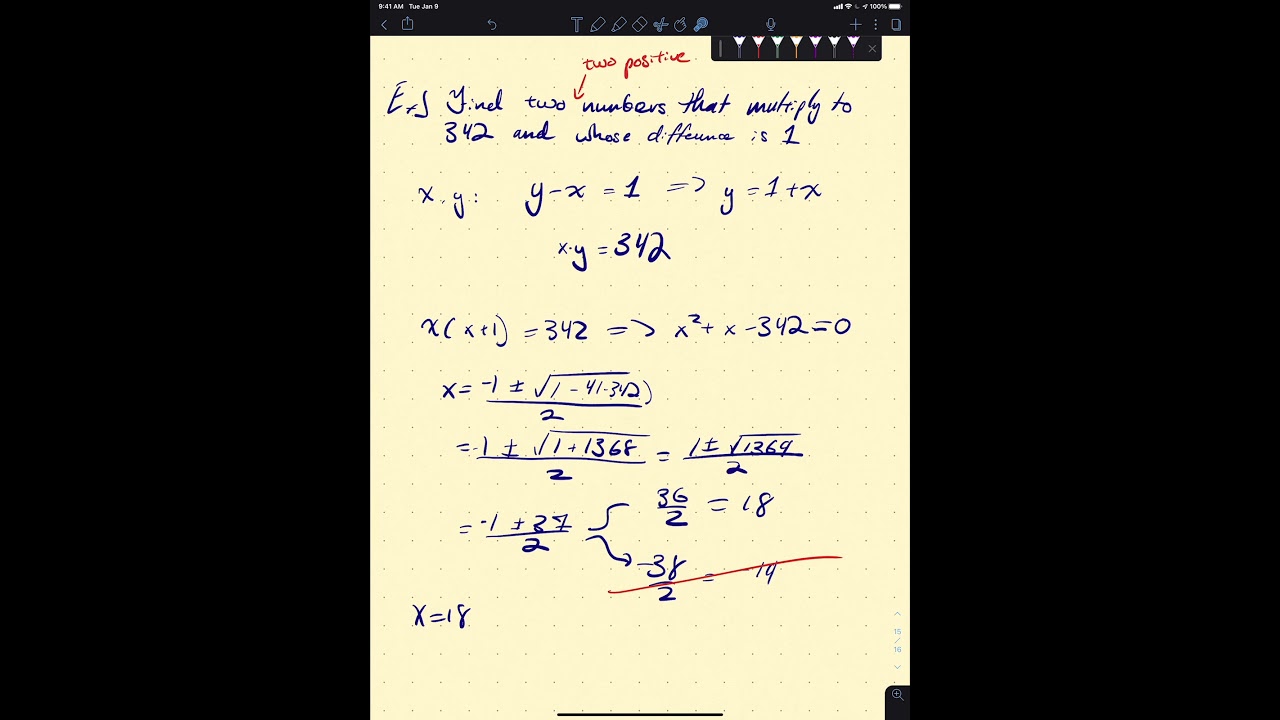 9:41 AM Tue Jan 9
100%
two positive
Ex] Find two numbers that multiply to
342 and whose difference is 1
x, y: y-x = 1 => y = 1+x
x·y = 342
x(x+1) = 342 => x²+x-342=0
x = -1 ± √(1-4·1·-342)
2
= -1 ± √1+1368 = 1 ± √1369
2 2
= -1 ± 37 36 = 18
2 2
-38 = -19
2
x=18
15
/
16